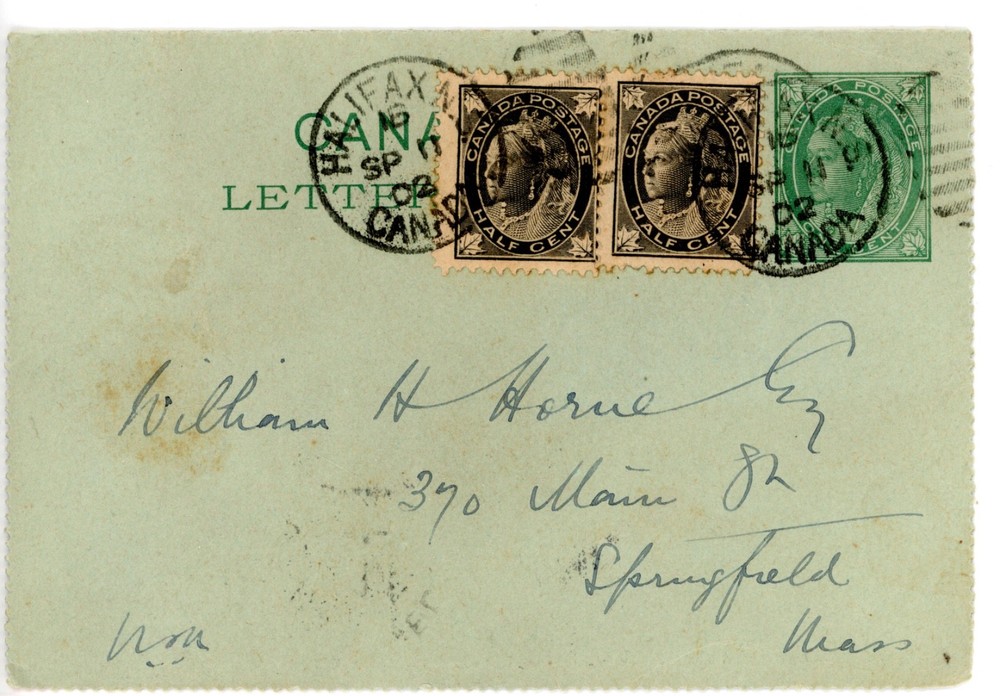 HALIFAX
CANADA
16
SP 11
02
CANA
LETTER
CANADA POSTAGE
HALF CENT
CANADA POSTAGE
HALF CENT
CANADA POSTAGE
CENT
SP 11
02
CANADA
William H Horne Esq
370 Main St
Springfield
Mass